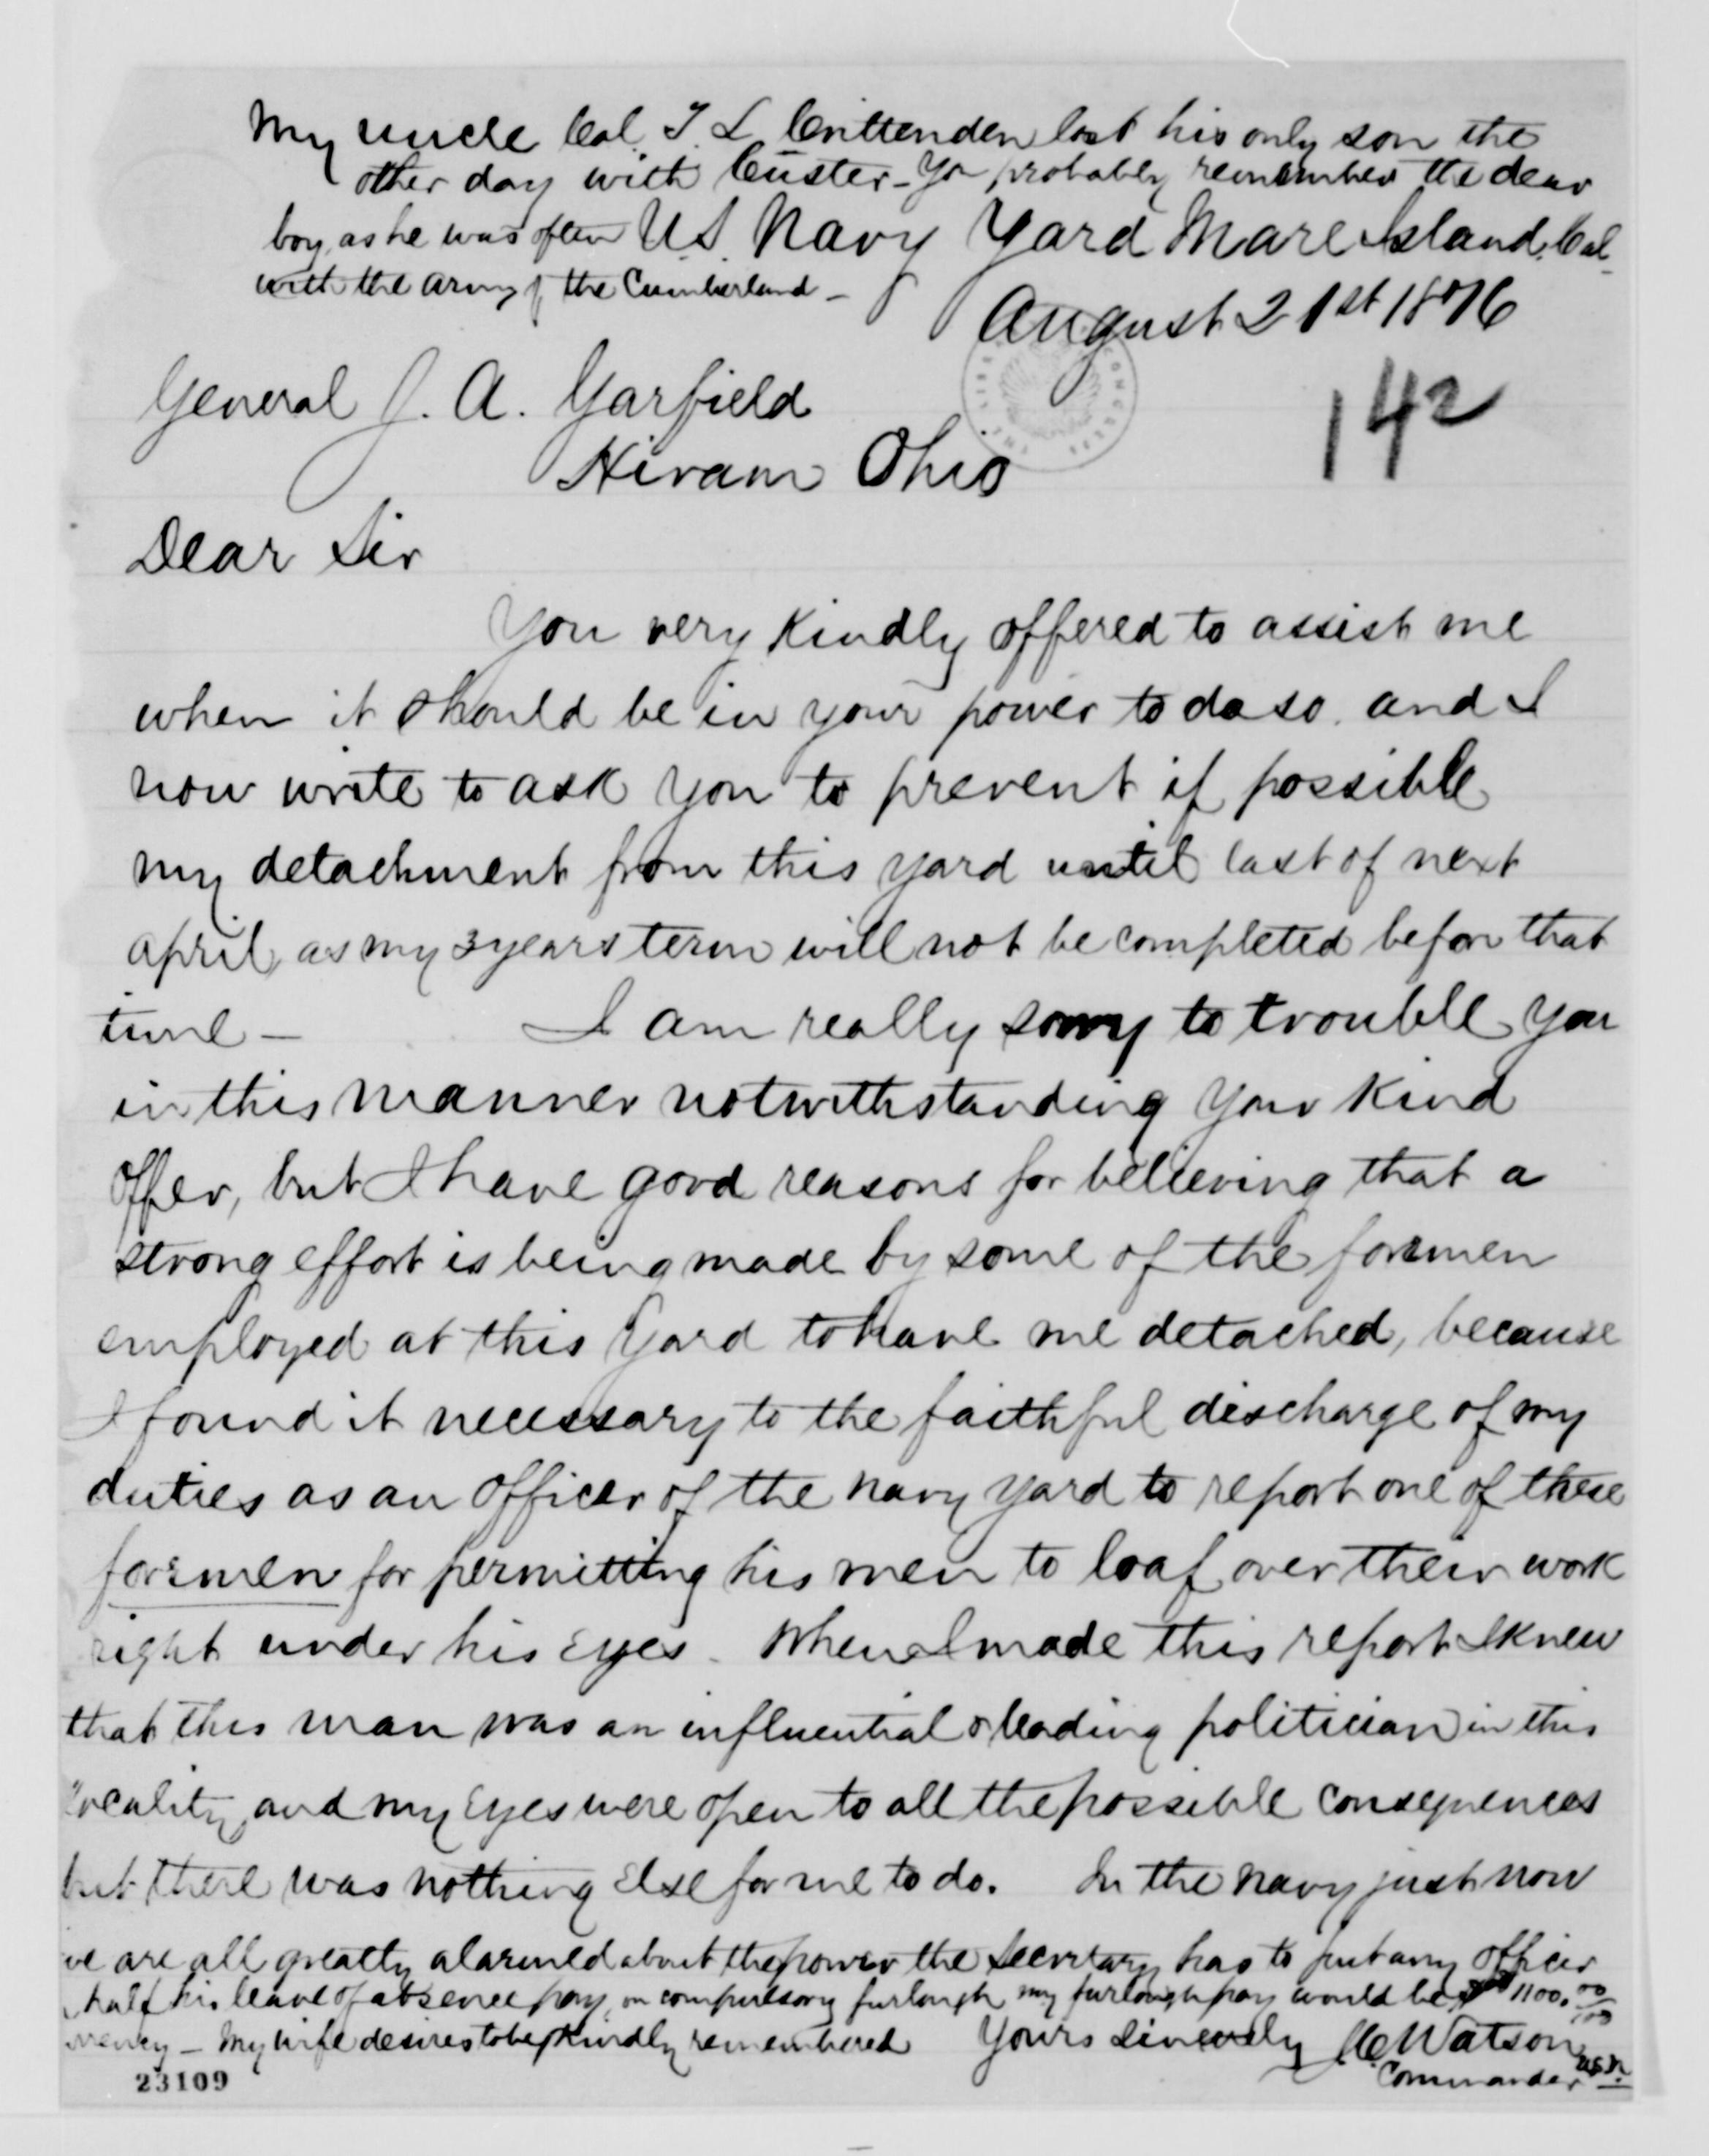 My uncle Col. T. L. Crittenden lost his only son the
other day with Custer - You probably remember the dear
boy, as he was often
with the army of the Cumberland -
U.S. Navy Yard Mare Island, Cal
August 21st 1876
142
General J. A. Garfield
Hiram Ohio
Dear Sir
You very kindly offered to assist me
when it should be in your power to do so. and I
now write to ask you to prevent if possible
my detachment from this yard until last of next
april, as my 3 years term will not be completed before that
time - I am really sorry to trouble you
in this manner notwithstanding your kind
offer, but I have good reasons for believing that a
strong effort is being made by some of the foremen
employed at this Yard to have me detached, because
I found it necessary to the faithful discharge of my
duties as an officer of the navy yard to report one of these
foremen for permitting his men to loaf over their work
right under his eyes. When I made this report I knew
that this man was an influential & leading politician in this
locality, and my eyes were open to all the possible consequences
but there was nothing else for me to do. In the navy just now
we are all greatly alarmed about the power the Secretary has to put any officer
half his leave of absence pay, on compulsory furlough my furlough pay would be 1100.00/100
- My wife desires to be kindly remembered Yours Sincerely J C Watson
Commander USN.
23109